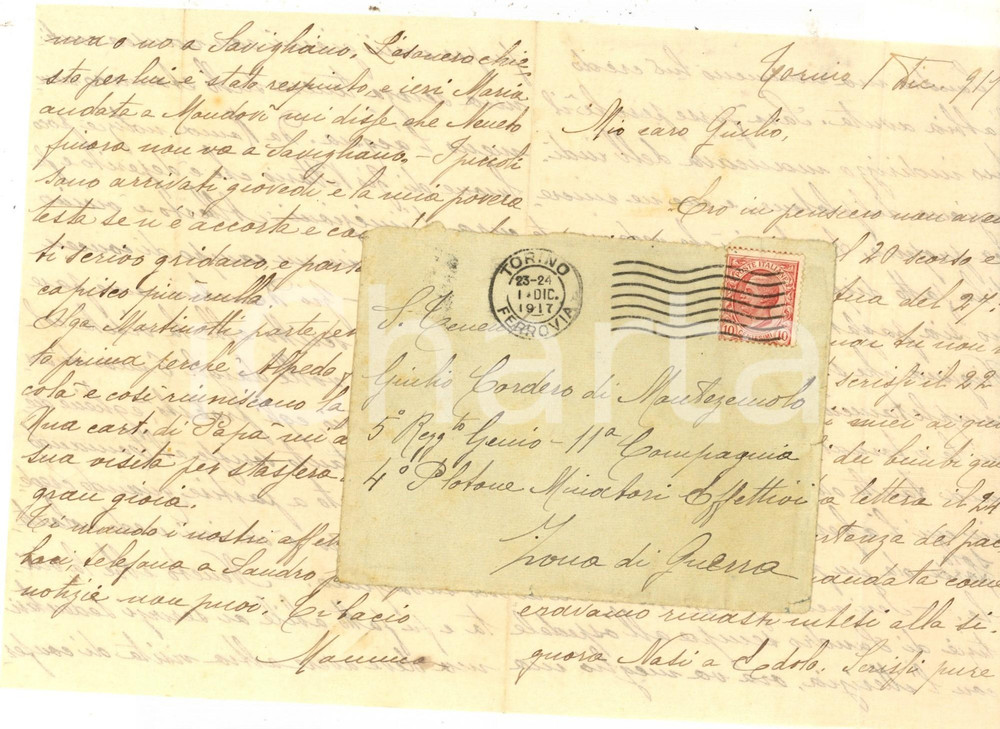 ma o no a Savigliano. L'esonero chie=
sto per lui è stato respinto, e ieri Maria
andata a Mondovì mi disse che Neneto
finora non va a Savigliano. - I piccoli
sono arrivati giovedì e la mia povera
testa se n'è accorta e
ti scrivo gridano, e
capisco più nulla
Olga Martinotti parte per
ta prima perchè Alfredo
cola e così riuniscono la
Una cart. di Papà mi
sua visita per stassera
gran gioia.
Ti mando i nostri
baci, telefona a Sandro
notizie non puoi. Ti bacio
Mamma
Torino 1 Dic. 917
Mio caro Giulio,
Ero in pensiero non
il 20 scorso e
tua del 27.
non
scrissi il 22
i miei ai
dei bimbi
lettera il 24
del
mandata come
eravamo rimasti intesi alla si=
gnora Nasi a Edolo. Scrissi pure
TORINO
23-24
1 DIC.
1917
FERROVIA
POSTE ITALIANE
10 10
S. Tenente
Giulio Cordero di Montezemolo
5° Regg.to Genio - 11a Compagnia
4° Plotone Minatori Effettivi
Zona di Guerra
Charta